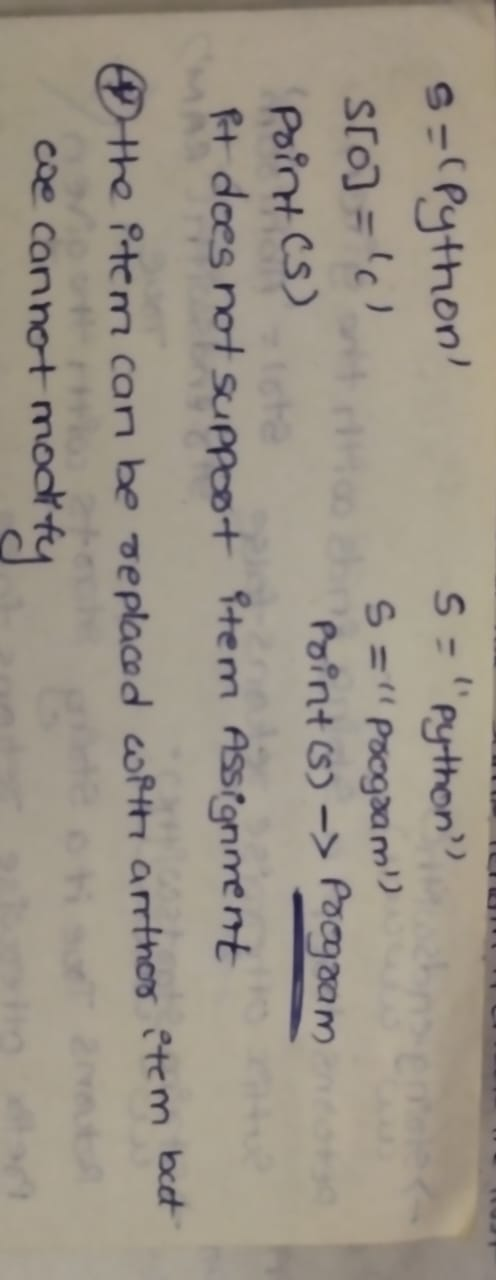 S = 'Python'
S[0] = 'c'
Print(S)
it does not support item Assignment
S = "Python"
S = "Program"
Print(S) -> Program
④ the item can be replaced with anthor item but
we cannot modify